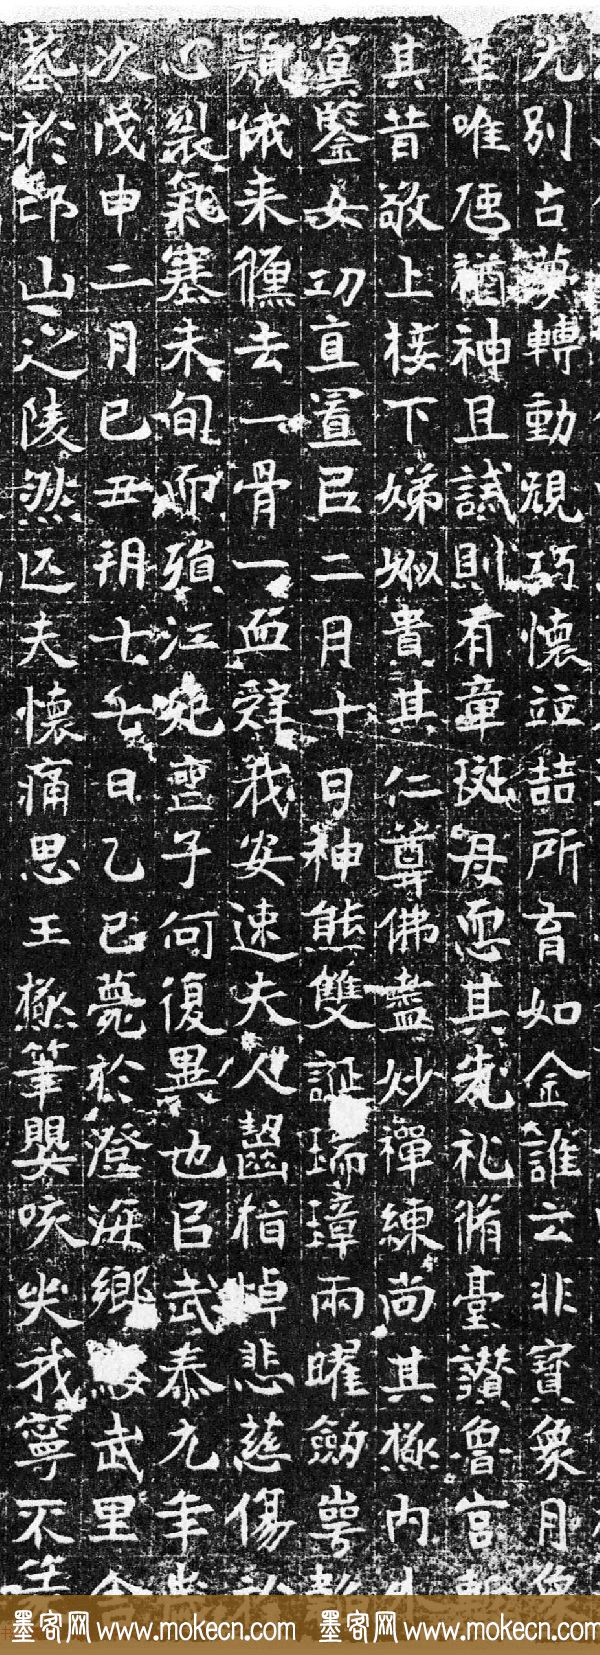 光別古夢轉動覢巧懷竝喆所育如金誰云非寶象月
唯㐆猶神且試則有章斑母恧其先礼脩臺讚魯宮
其昔敬上接下娣姒貴其仁尊佛盡妙禪練尚其極內
冥鑒女功直置㠯二月十日神熊雙誕瑞璋兩曜劒
俄來儵去一骨一血辞我安速夫人齧指悼悲慈傷
心裂氣塞未旬而殞江妃齊子何復異也㠯武泰元年
次戊申二月己丑朔十七日乙巳薨於澄海鄉綏武里
葬於邙山之陵然匹夫懷痛思王極筆嬰咳㖣我寧不
墨客网 www.mokecn.com 墨客网 www.mokecn.com